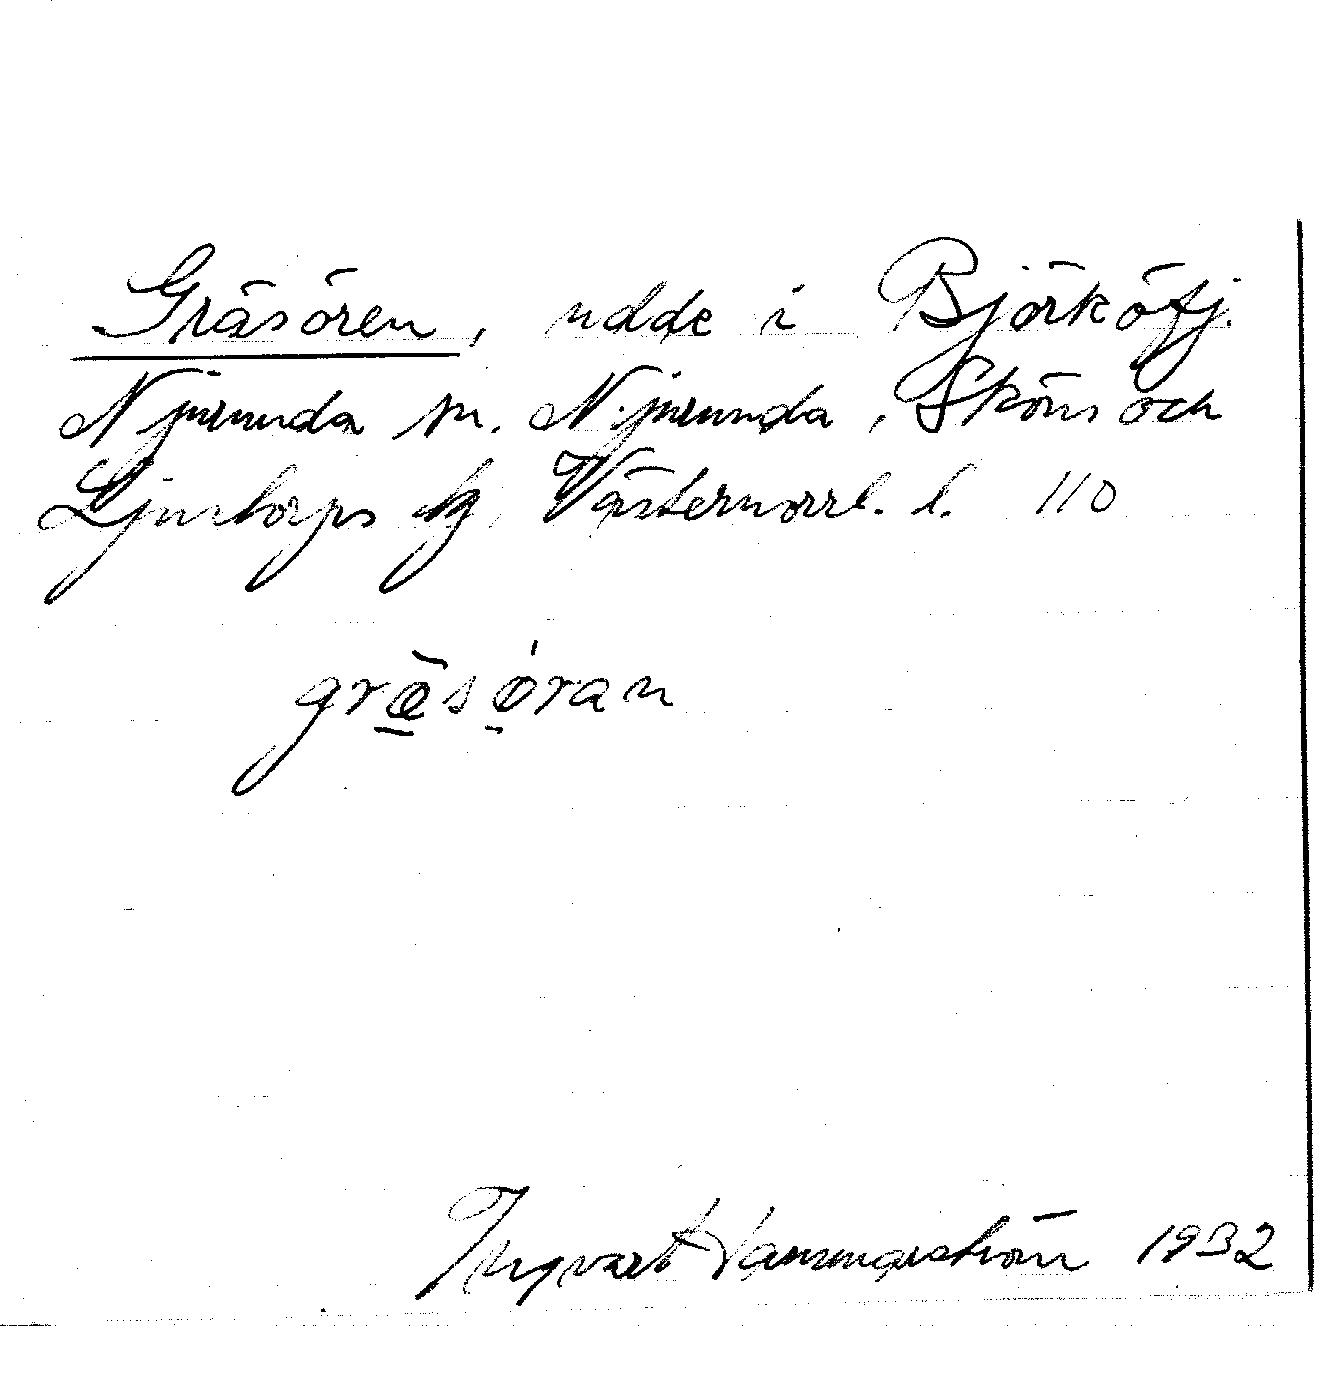 Gräsören, udde i Björköfj.
Njurunda sn. Njurunda, Sköns och
Ljustorps tg Västernorrl. l. 110
grœ̄sǿran
Yngvart 1932